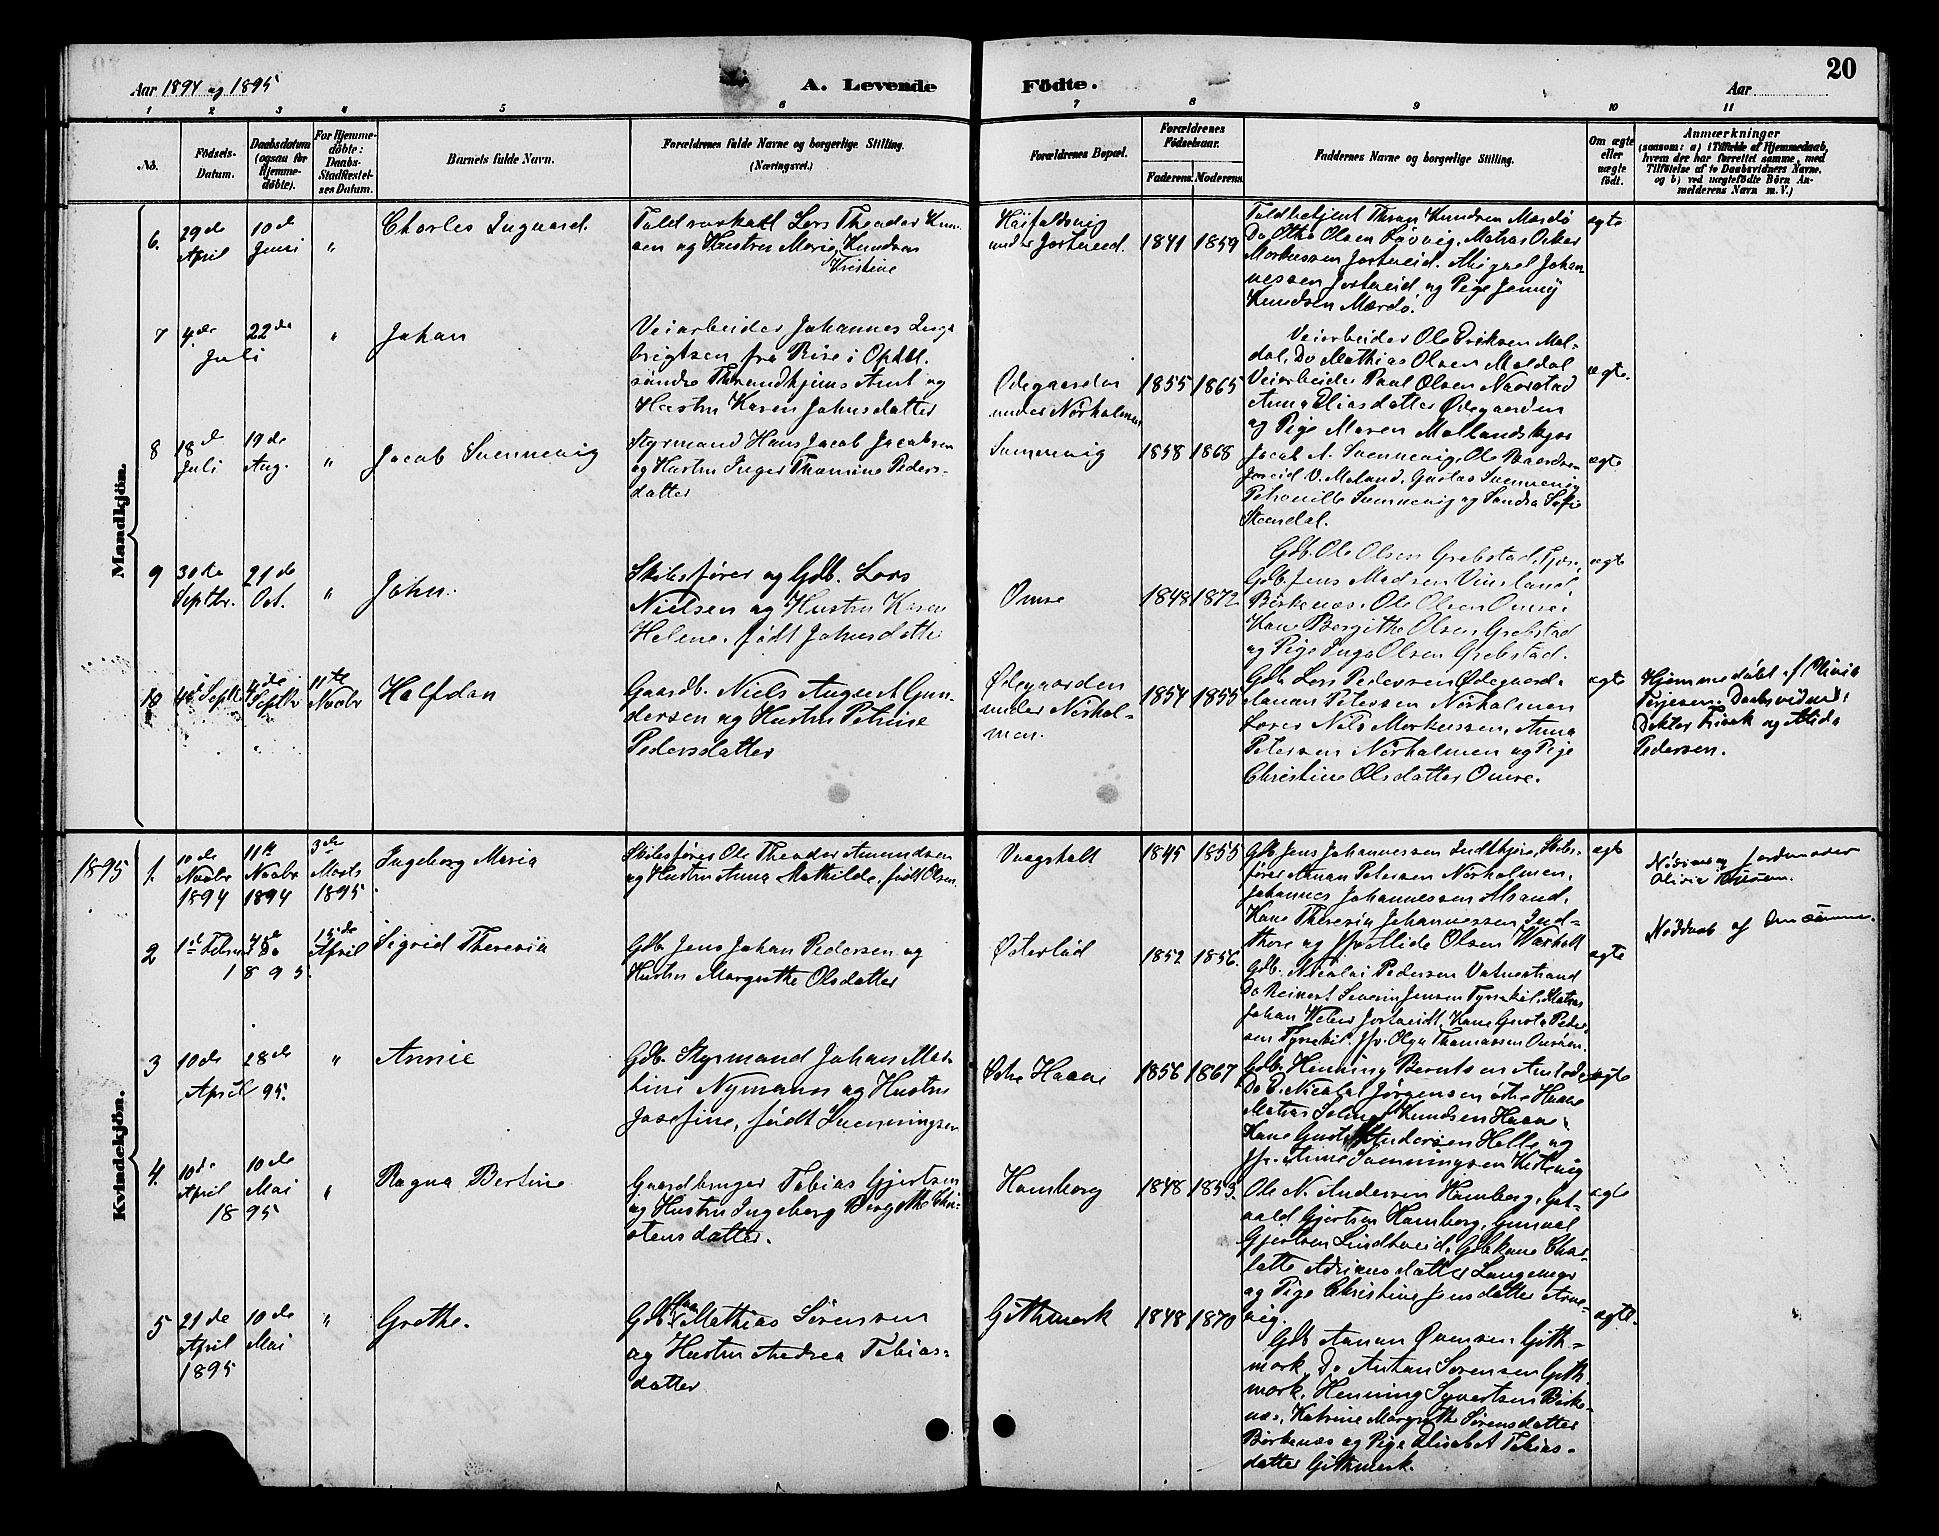 Aar 1894 og 1895
A. Levende
Fødte.
Aar
20
1 2 3 4 5 6 7 8 9 10 11
No.
Födsels-
Datum.
Daabsdatum
(ogsaa for
Hjemme-
døbte).
For Hjemme-
døbte:
Daabs-
Stadfæstel-
ses Datum.
Barnets fulde Navn.
Forældrenes fulde Navne og borgerlige Stilling.
(Næringsvei.)
Forældrenes Bopæl.
Forældrenes
Födselsaar.
Faderens. Moderens.
Faddernes Navne og borgerlige Stilling.
Om ægte
eller
uægte
født.
Anmærkninger
(saasom: a) i Tilfælde af Hjemmedaab,
hvem der har forrettet samme, med
Tilföielse af to Daabsvidners Navne,
og b) ved uægtefödte Börn An-
melderens Navn m. V.)
Mandkjön.
6. 29de
April
10de
Juni
"
Charles Ingvard.
Toldrorkarl Lars Theodor Knud-
sen og Hustru Marie Knudsen
Kristine
under Jortveid.
1841 1859
Toldbetjent Knudsen Mærdö
Do Otto Olsen Løvvig, Matros Oskar
Markussen Jortveid, Johan-
nessen Jortveid, og Pige Jenny
Knudsen Mærdö.
ægte
7 4de
Juli
22de
"
Johan
Veiarbeider Johannes Inge
brigtsen fra Rise i Opdal.
söndre Throndhjems Amt og
Hustru Karen Johnsdatter
Ødegaarden
under Nörholmen
1855 1865
Veiarbeider Ole Eriksen Mol-
dal, Do Mathias Olsen Moldal
Veiarbeider Paul Olsen Naavstad
Anna Eliasdatter Ødegaarden
og Pige Maren Mollandskjær
ægte.
8 18de
Juli
19de
Aug.
"
Jacob Svennevig
Styrmand Hans Jacob Jacobsen
og Hustru Inger Thomine Peders-
datter
Svennevig
1858 1868
Jacob A. Svennevig, Ole
V. Moland, Gustav Svennevig
Petronille Svennevig og Sandra Sofie
Steendal.
ægte
9 30de
Septbr.
21de
Oct.
"
John.
Skibsfører og Gdb. Lars
Nielsen og Hustru Karen
Helene, født Johnsdatter
Omre
1848 1872
Gdb. Ole Olsen Grebstad,
Gdb. Jens Madsen Vinsland,
Birkenæs, Ole Olsen Omre,
Kone Bergithe Olsen Grebstad
og Pige Inga Olsen Grebstad.
ægte
10 4de Septbr
Septbr
11te
Novbr
Halfdan
Gaardb. Niels August Gun-
dersen og Hustru Petrine
Pedersdatter
Ødegaarden
under Nörhol-
men.
1854 1855
Gdb Lars Pedersen Ødegaard-
Aanan Petersen Nörholmen
Niels Markussen, Anna
Petersen Nörholmen og Pige
Christine Olsdatter Omre.
ægte
Hjemmedöbt af Olivia
Terjesen. Daabsvidner:
Doktor og Alida
Pedersen.
Kvindekjön.
1895
1. 10de
Novbr
1894
11te
Novbr
1894
3de
Marts
1895
Ingeborg Maria
Skibsfører Ole Theodor Amundsen
og Hustru Anna Mathilde, født Olsen.
Vaagsholt
1845 1855
Gdb Jens Johannessen Indthjore, Skibs-
förer Aanan Petersen Nörholmen,
Johannes Johannessen
Kone Theresia Johannessen Ind-
thore og Jfr. Alida Olsen Vaxholt
ægt
Jordmoder
Olivia
2 1ste Febru
Do
1895.
15de
April
Sigrid Theresia
Gdb. Jens Johan Pedersen og
Hustru Margrethe Olsdatter
Østerhus
1852 1856.
Gdb. Nicolai Pedersen Vatnestrand
Do Reinert Severin Jensen Tyssekil, Matros
Johan Weber Jortveidt, Kone Gusta Peder-
sen Tyssekil Jfr. Olga Thomassen
ægte
Nöddaab af samme.
3 10de
April
28de
95.
"
Annie
Gdb. Styrmand Johan Mar-
tini Nymann og Hustru
Josefine, født Svenningsen
Østre Haave
1856 1867
Gdb. Henning Berntsen
Do E. Nicolai Jørgensen østre Haave
Matros Knudsen Haave,
Kone Andersen Helle, og
Jfr. Anne Svenningsen
ægte
4. 10de
April
10de
Mai
1895
"
Ragna Bertine
Gaardbruger Tobias Gjertsen
og Hustru Ingeborg Bergethe Chri-
stensdatter.
Homborg
1848 1853.
Ole N. Andersen Homborg,
Gjertsen Homborg, Gunval
Gjertsen Lindtveid, Gdbkone Char-
lotte Adriansdatter Langemyr
og Pige Christine Jensdatter Arne-
vig.
ægte
5 21de
April
1895
10de
Mai
"
Grethe.
Gdb. Mathias Sörensen
og Hustru Andrea Tobias-
datter
Githmark
1848 1870
Gdb Aanan Øvensen Gith-
mark, Do Anton Sörensen Gith-
mark, Henning Syvertsen Birke-
næs, Katrine Margrethe Sörensdatter
Birkenæs og Pige Elisabet Tobias-
datter Githmark.
ægte.